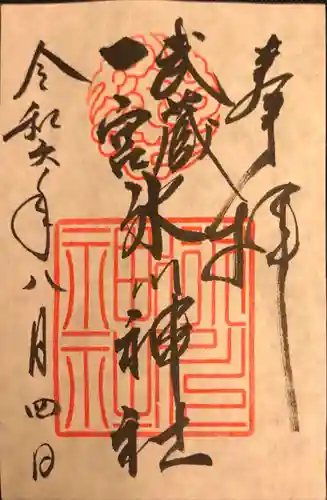 奉拝
武蔵
一宮
氷川神社
令和六年八月四日